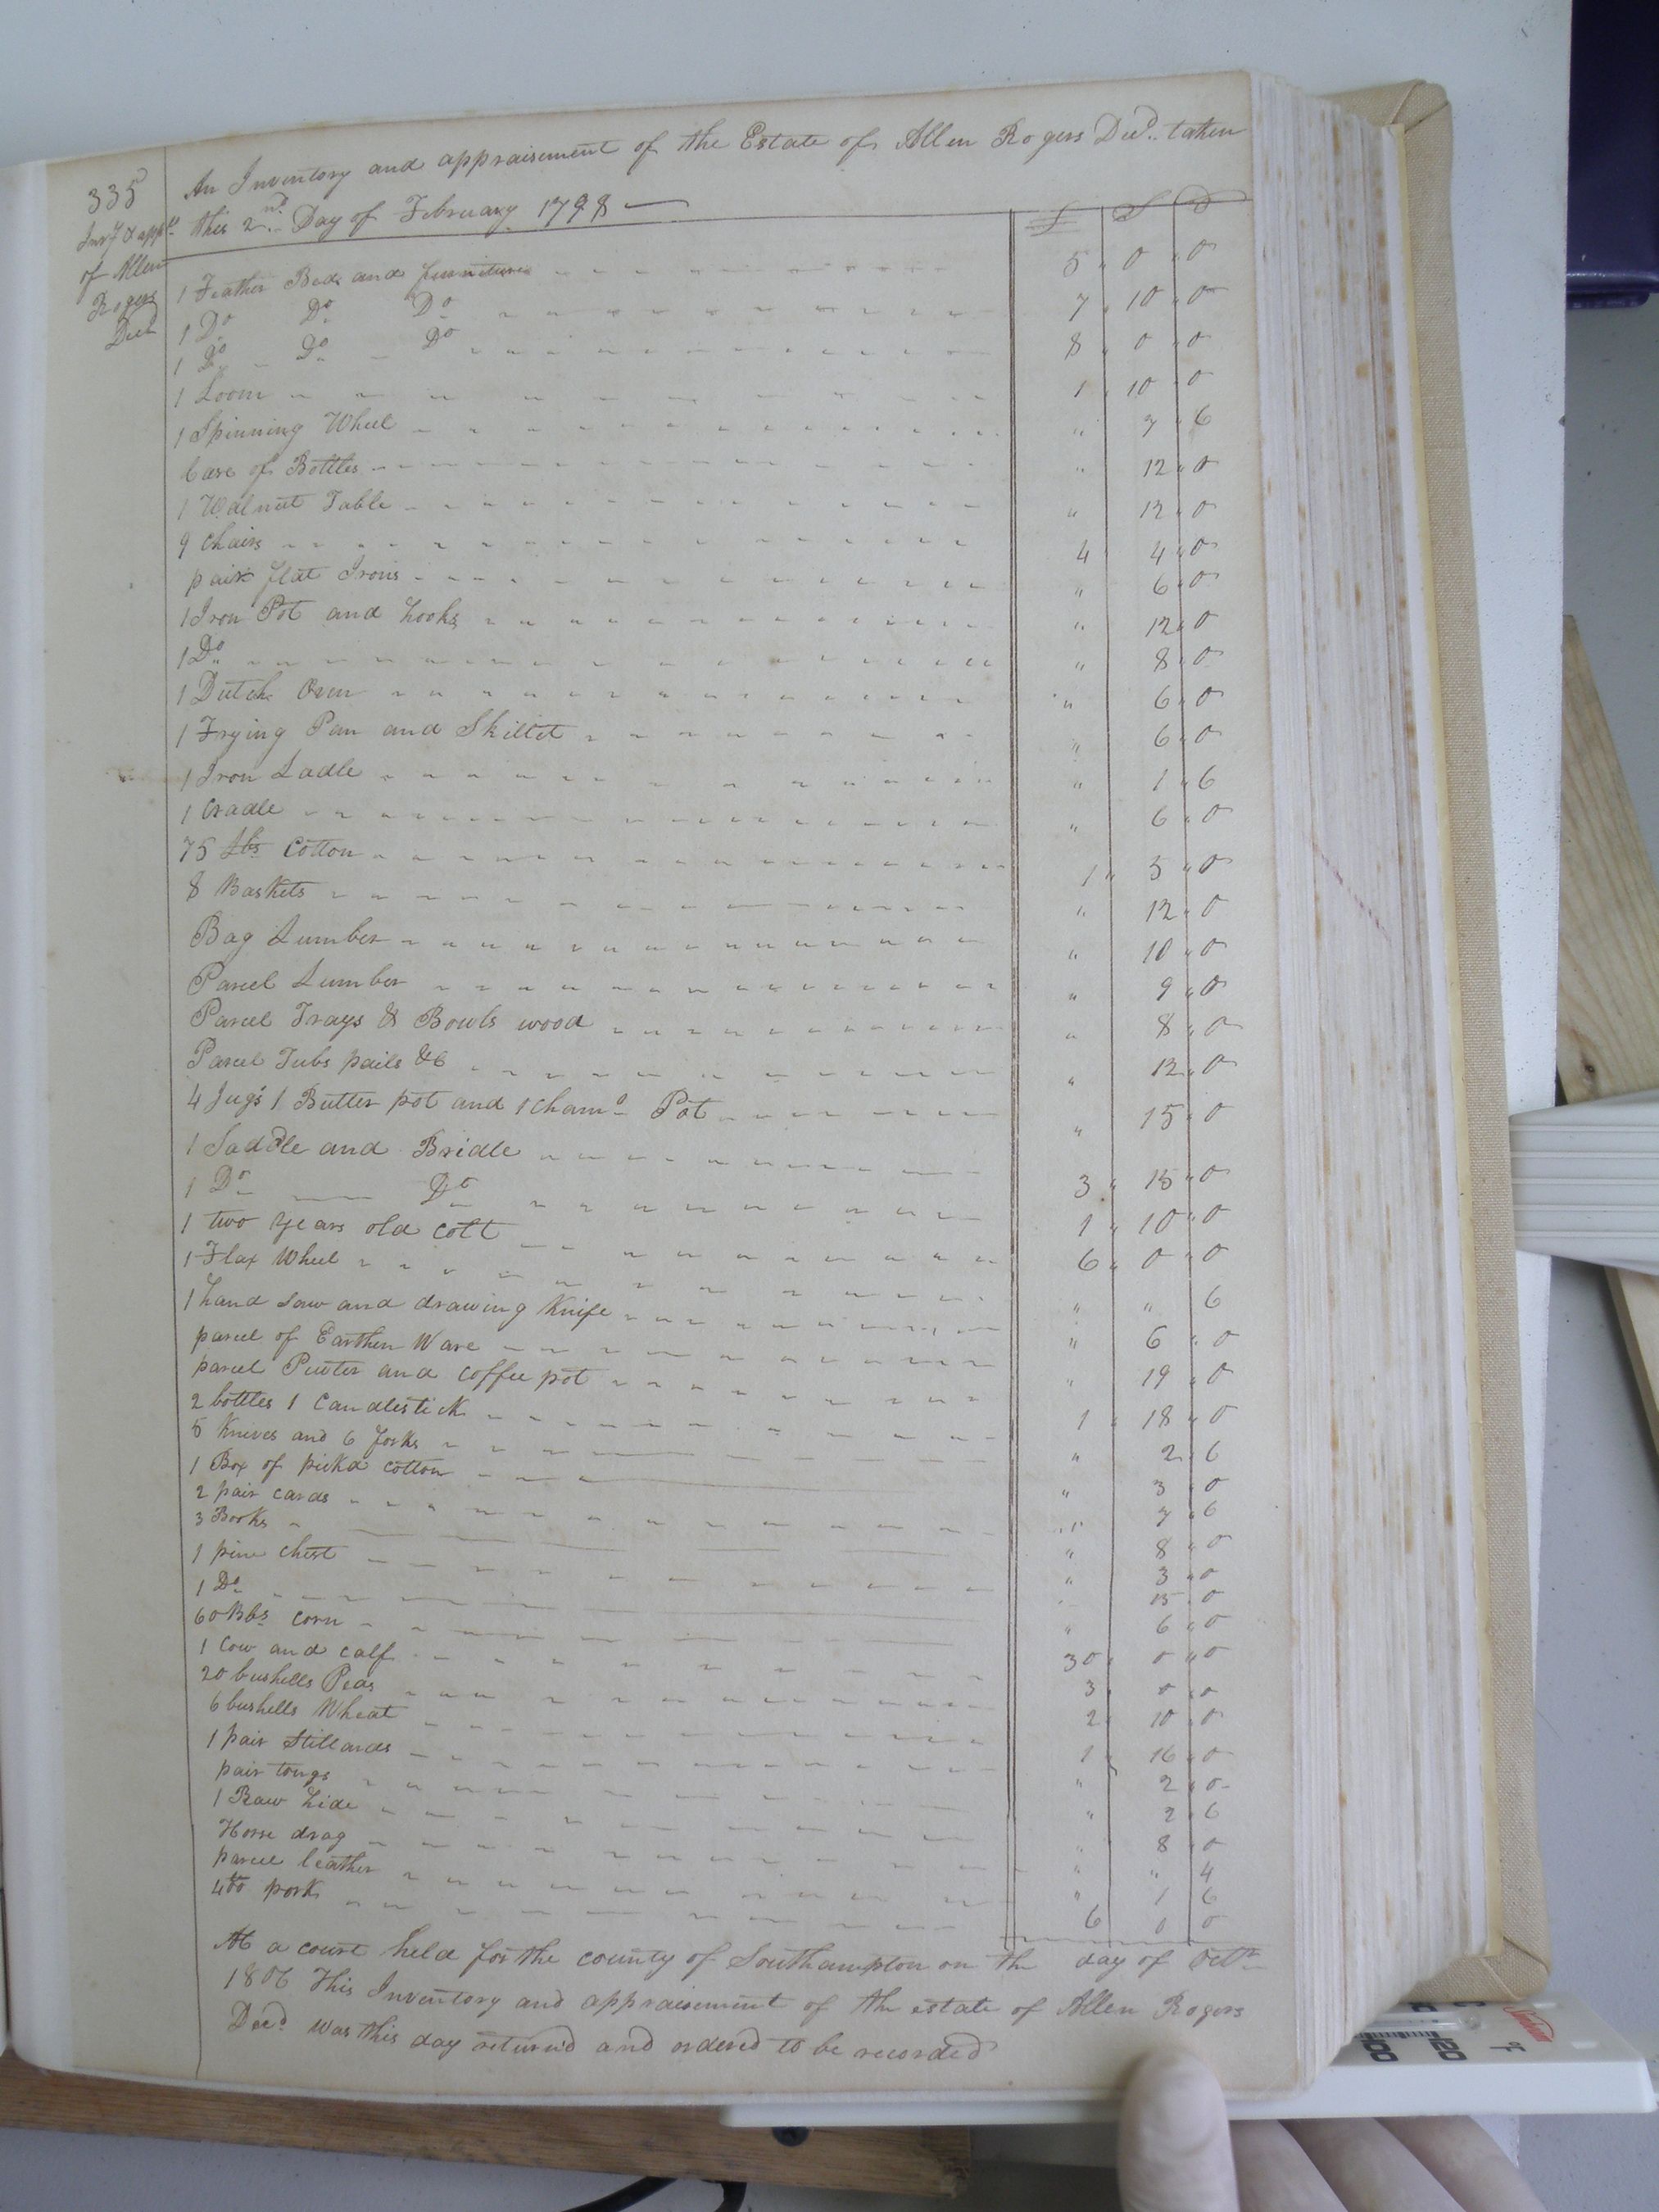 335
Invy & appt
of Allen
Rogers
Decd
An Inventory and appraisement of the Estate of Allen Rogers Decd. taken
this 2nd Day of February 1798
£ S D
1 Feather Bed and furniture 5 " 0 " 0
1 Do Do Do 7 " 10 " 0
1 Do Do Do 8 " 0 " 0
1 Loom 1 " 10 " 0
1 Spinning Wheel " 7 " 6
Case of Bottles " 12 " 0
1 Walnut Table " 12 " 0
9 Chairs 4 4 " 0
pair flat Irons " 6 " 0
1 Iron Pot and hooks " 12 " 0
1 Do " 8 " 0
1 Dutch Oven " 6 " 0
1 Frying Pan and Skillet " 6 " 0
1 Iron Ladle " 1 " 6
1 Cradle " 6 " 0
75 lbs Cotton 1 " 5 " 0
8 Baskets " 12 " 0
Bag Lumber " 10 " 0
Parcel Lumber " 9 " 0
Parcel Trays & Bowls wood " 8 " 0
Parcel Tubs pails &c " 12 " 0
4 Jugs 1 Butter pot and 1 Chamo Pot " 15 " 0
1 Saddle and Bridle 3 " 15 " 0
1 Do Do 1 " 10 " 0
1 two years old Colt 6 " 0 " 0
1 Flax Wheel " " 6
1 hand saw and drawing Knife " 6 " 0
parcel of Earthen Ware " 19 " 0
parcel Pewter and coffee pot 1 " 18 " 0
2 bottles 1 Candlestick " 2 " 6
5 Knives and 6 forks " 3 " 0
1 Box of pickd cotton " 7 " 6
2 pair cards " 8 " 0
3 Books " 3 " 0
1 pine chest " 15 " 0
1 Do " 6 " 0
60 Bbs corn 30 " 0 " 0
1 Cow and calf 3 " 0 " 0
20 bushells Peas 2 " 10 " 0
6 bushells Wheat 1 " 16 " 0
1 pair Stillards " 2 " 0
pair tongs " 2 " 6
1 Raw hide " 8 " 0
Horse drag " " 4
parcel leather " 1 6
400 pork 6 0 0
At a court held for the county of Southampton on the day of Octr
1806 This Inventory and appraisement of the estate of Allen Rogers
Decd was this day returnd and ordered to be recorded
100
120
°F